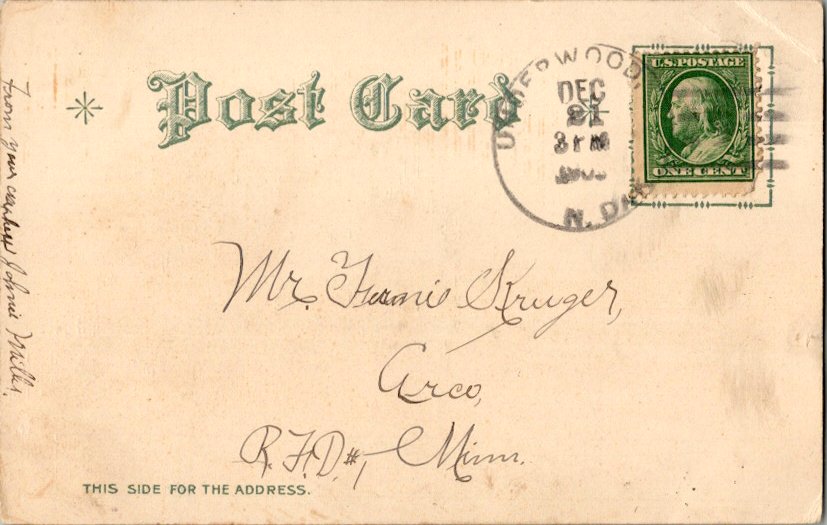 Post Card
UNDERWOOD,
DEC
21
3 PM
N. DAK
U.S. POSTAGE
ONE CENT
Mr. Kruger,
Arco,
R.F.D.#1, Minn.
THIS SIDE FOR THE ADDRESS.
From your Johnie Miller.